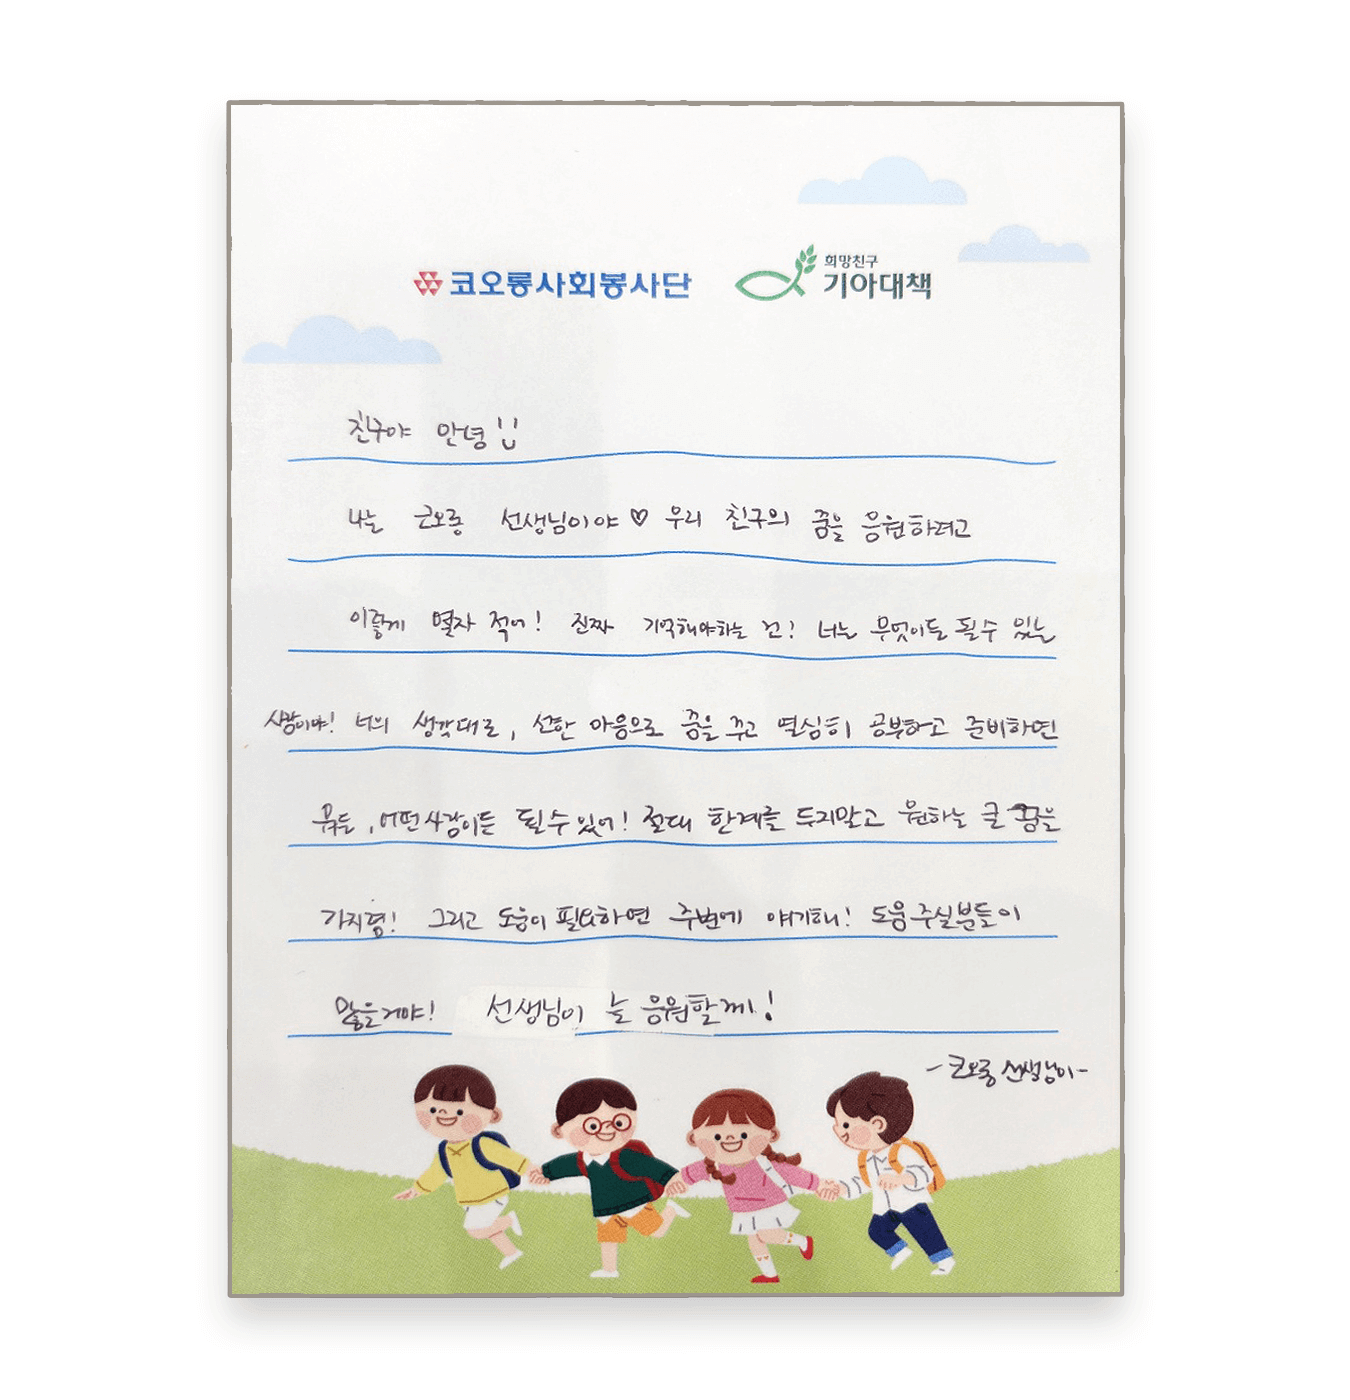 코오롱사회봉사단
희망친구
기아대책
친구야 안녕
나는 코오롱 선생님이야♡ 우리 친구의 꿈을 응원하려고
이렇게 몇자 적어! 진짜 기억해야하는 건! 너는 무엇이든 될 수 있는
사람이야! 너의 생각대로, 선한 마음으로 꿈을 꾸고 열심히 공부하고 준비하면
뭐든, 어떤 사람이든 될 수 있어! 절대 한계를 두지말고 원하는 큰 꿈을
가지렴! 그리고 도움이 필요하면 주변에 얘기해! 도움 주실분들이
많을거야! 선생님이 늘 응원할께!
-코오롱 선생님이-